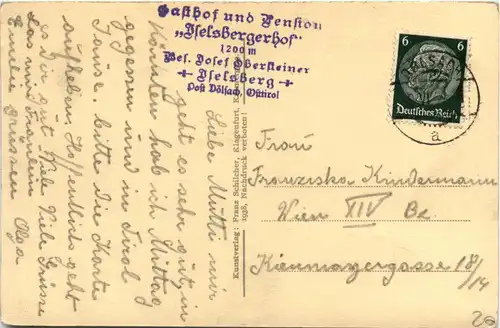 Gasthof und Pension
„Iselsbergerhof"
1200 m
Bes. Josef Obersteiner
Iselsberg
Post Dölsach, Osttirol
6
6
Deutsches Reich
a
Liebe Mutti mir
geht es sehr gut, in
Kärnten hab ich Mittag
gegessen und in Tirol
Jause. bitte die Karte
aufheben, Hoffentlich geht
es Dir gut Viele Viele Grüsse
Olga
Kunstverlag: Franz Schilcher, Klagenfurt,
1938, Nachdruck verboten!
Frau
Franziska Kindermann
Wien XIV Be.
Kienmayergasse 18/14
26